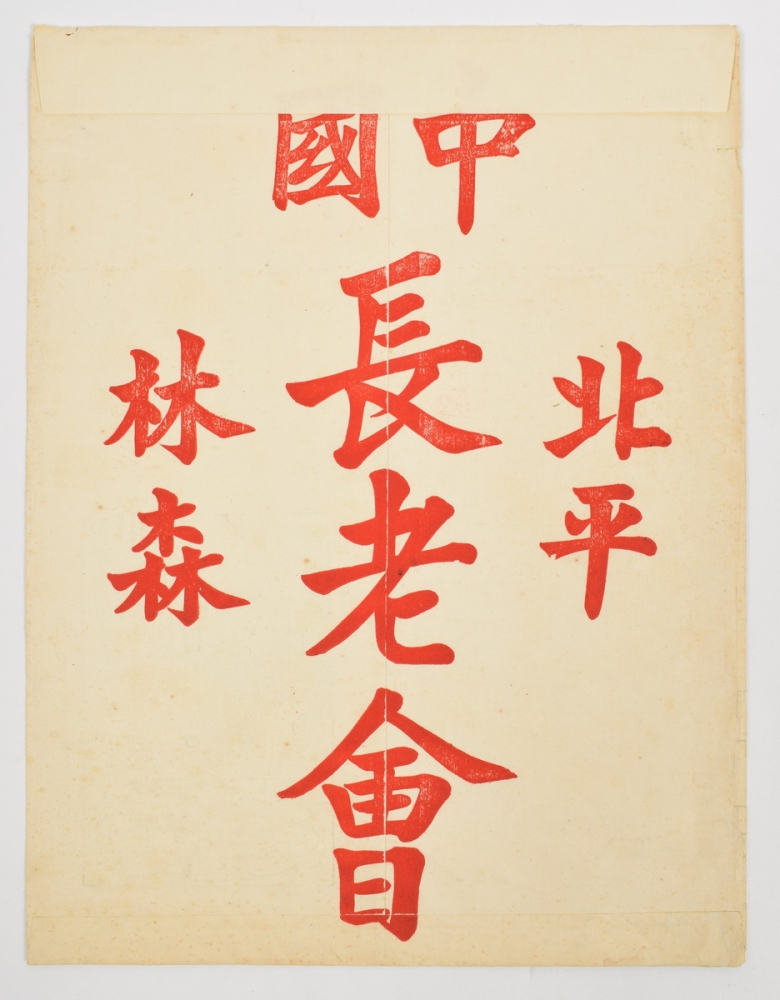 北平
中國
長老會
林森